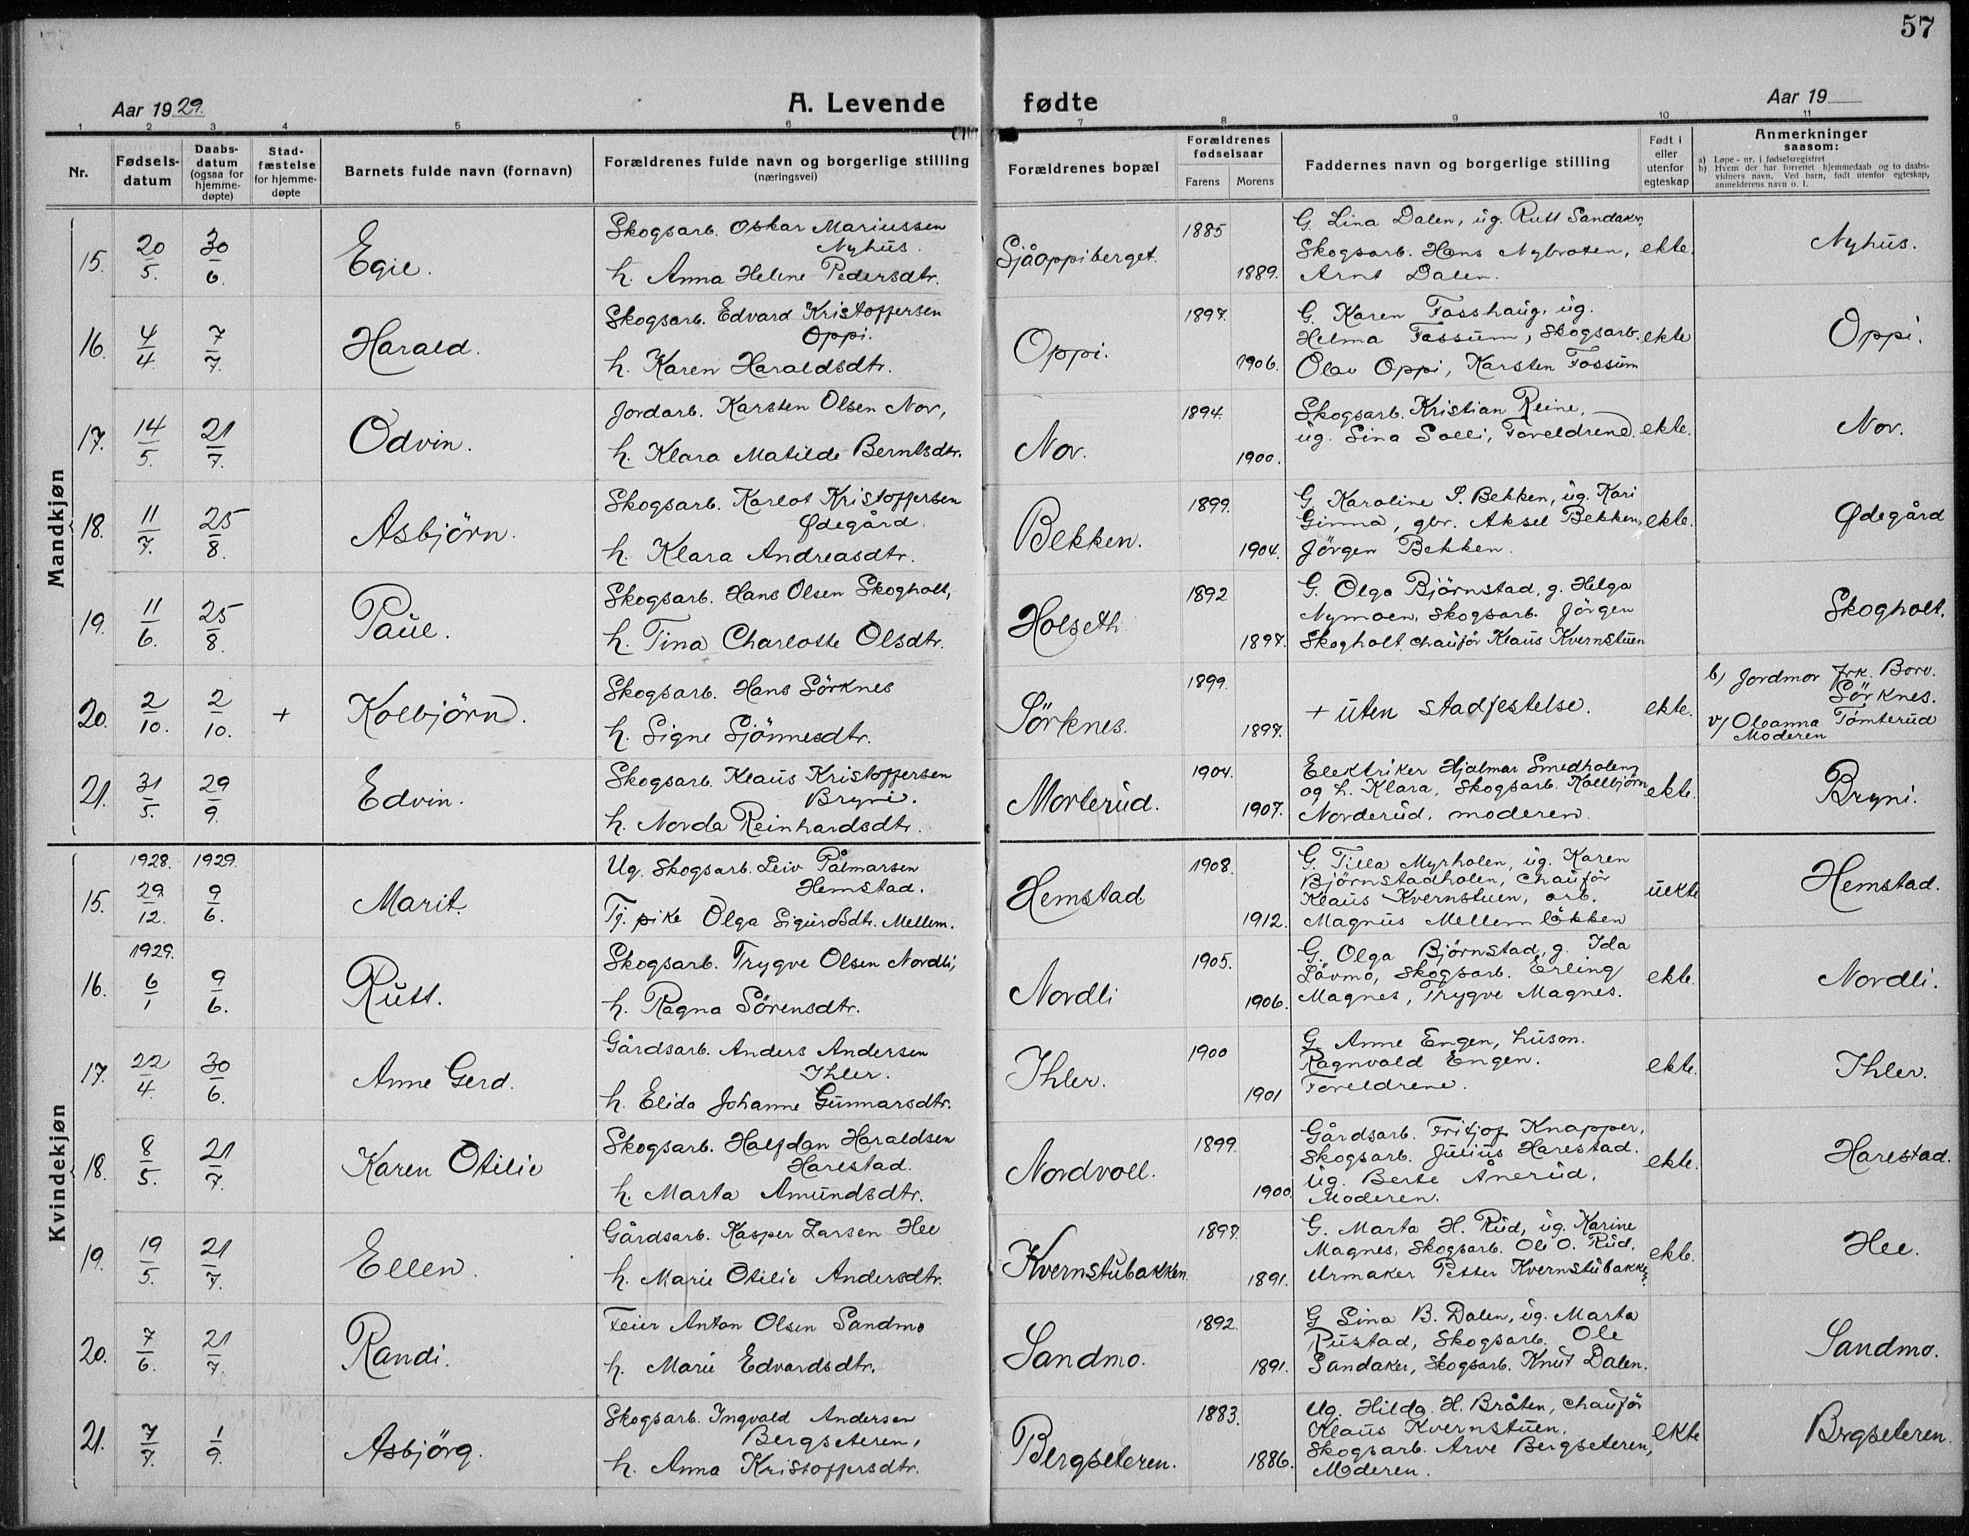 57
Aar 1929.
A. Levende fødte
Aar 19
1 2 3 4 5 6 7 8 9 10 11
Nr.
Fødselsdatum
Daabsdatum (ogsaa for hjemmedøpte)
Stadfæstelse for hjemmedøpte
Barnets fulde navn (fornavn)
Forældrenes fulde navn og borgerlige stilling (næringsvei)
Forældrenes bopæl
Forældrenes fødselsaar
Farens Morens
Faddernes navn og borgerlige stilling
Født i eller utenfor egteskap
Anmerkninger saasom:
a) Løpe-nr. i fødselsregistret
b) Hvem der har forrettet hjemmedaab og to daabsvidners navn. Ved barn, født utenfor egteskap, anmelderens navn o. l.
Mandkjøn
15. 20/5. 30/6. Egil.
Skogsarb. Oskar Mariussen
Nyhus.
h. Anna Helene Pedersdtr.
Sjåoppiberget. 1885 1889.
G. Lina Dalen, ug. Rutt Sandaker,
Skogsarb. Hans Nybroten,
Arnt Dalen.
ekte. Nyhus.
16. 4/4 7/7. Harald.
Skogsarb. Edvard Kristoffersen
Oppi.
h. Karen Haraldsdtr.
Oppi. 1897. 1906.
G. Karen Fosshaug, ug.
Helma Fossum, Skogsarb.
Olav Oppi, Karsten Fossum
ekte Oppi.
17. 14/5. 21/7. Odvin.
Jordarb. Karsten Olsen Nor,
h. Klara Matilde Berntsdtr.
Nor. 1894. 1900.
Skogsarb. Kristian Reine,
ug. Lina Solli, Foreldrene.
ekte. Nor.
18. 11/7. 25/8. Asbjörn.
Skogsarb. Karlot Kristoffersen
Ødegård.
h. Klara Andreasdtr.
Bekken. 1899. 1904.
G. Karoline S. Bekken, ug. Kari
Ginna, gbr. Aksel Bekken,
Jörgen Bekken.
ekte. Ødegård
19. 11/6. 25/8. Paul.
Skogsarb. Hans Olsen Skogholt,
h. Tina Charlotte Olsdtr.
Holseth 1892 1897.
G. Olga Björnstad, g. Helga
Nymoen, Skogsarb. Jörgen
Skogholt, chauför Klaus Kvernstuen
Skogholt.
20. 2/10. 2/10. + Kolbjörn.
Skogsarb. Hans Sörknes
h. Signe Sjönnesdtr.
Sörknes. 1899. 1897.
+ uten stadfestelse.
ekte.
b) Jordmor frk. Borv.
Sörknes.
v/ Oleanna Tömterud
Moderen
21. 31/5. 29/9. Edvin.
Skogsarb. Klaus Kristoffersen
Bryni.
h. Norda Reinhardsdtr.
Morterud. 1904. 1907.
Elektriker Hjalmar Smedholen
og h. Klara, Skogsarb. Kollbjörn
Norderud. moderen
ekte. Bryni.
Kvindekjøn
1928. 1929.
15. 29/12. 9/6. Marit.
Ug. Skogsarb. Leiv Pålmarsen
Hemstad.
Tj. pike Olga Sigurdsdtr. Mellem.
Hemstad 1908. 1912.
G. Tilla Myrholen, ug. Karen
Björnstadholen, chauför
Klaus Kvernstuen, arb.
Magnus Mellemlökken
uekte Hemstad.
1929.
16. 6/1 9/6. Rutt.
Skogsarb. Trygve Olsen Nordli,
h. Ragna Sörensdtr.
Nordli 1905. 1906.
G. Olga Björnstad, g. Ida
Lövmo, Skogsarb. Erling
Magnes, Trygve Magnes.
ekte. Nordli.
17. 22/4. 30/6. Anne Gerd.
Gårdsarb. Anders Andersen
Ihler.
h. Elida Johanne Gunnarsdtr.
Ihler. 1900 1901
G. Anne Engen, husm.
Ragnvald Engen.
Foreldrene.
ekte. Ihler.
18. 8/5. 21/7. Karen Otilie
Skogsarb. Halfdan Haraldsen
Harestad.
h. Marta Amundsdtr.
Nordvoll. 1899. 1900.
Gårdsarb. Fritjof Knapper,
Skogsarb. Julius Harestad.
ug. Berte Ånerud,
Moderen.
ekte. Harestad.
19. 19/5. 21/7. Ellen
Gårdsarb. Kasper Larsen Hee
h. Marie Otilie Andersdtr.
Kvernstubakken. 1897. 1891.
G. Marta H. Rud, ug. Karine
Magnes, Skogsarb. Ole O. Rud.
Urmaker Petter Kvernstubakken
ekte. Hee.
20. 7/6. 21/7. Randi.
Feier Anton Olsen Sandmo
h. Marie Edvardsdtr.
Sandmo. 1892. 1891.
G Lina B. Dalen, ug. Marta
Rustad, Skogsarb. Ole
Sandaker, Skogsarb. Knut Dalen.
Sandmo.
21. 7/7. 1/9. Asbjörg.
Skogsarb. Ingvald Andersen
Bergseteren,
h. Anna Kristoffersdtr.
Bergseteren. 1883. 1886.
Ug. Hilda H. Bråten, chauför
Klaus Kvernstuen,
Skogsarb. Arve Bergseteren,
Moderen.
ekte Brgseteren.